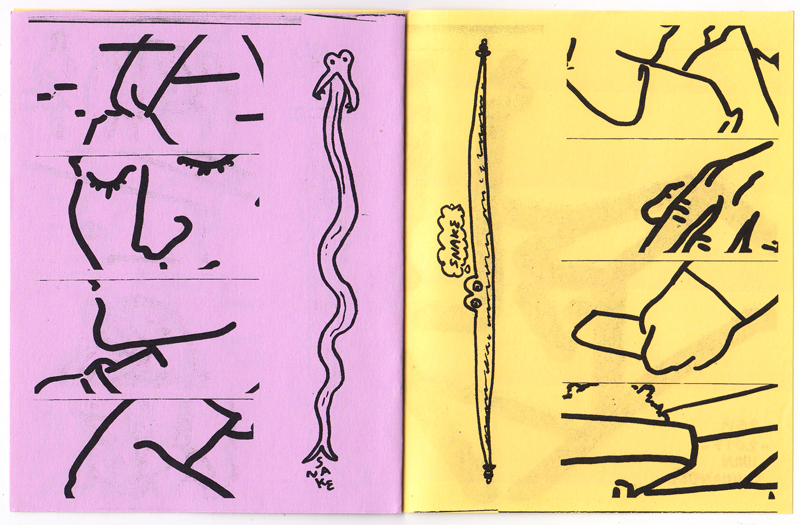 SNAKE
SNAKE